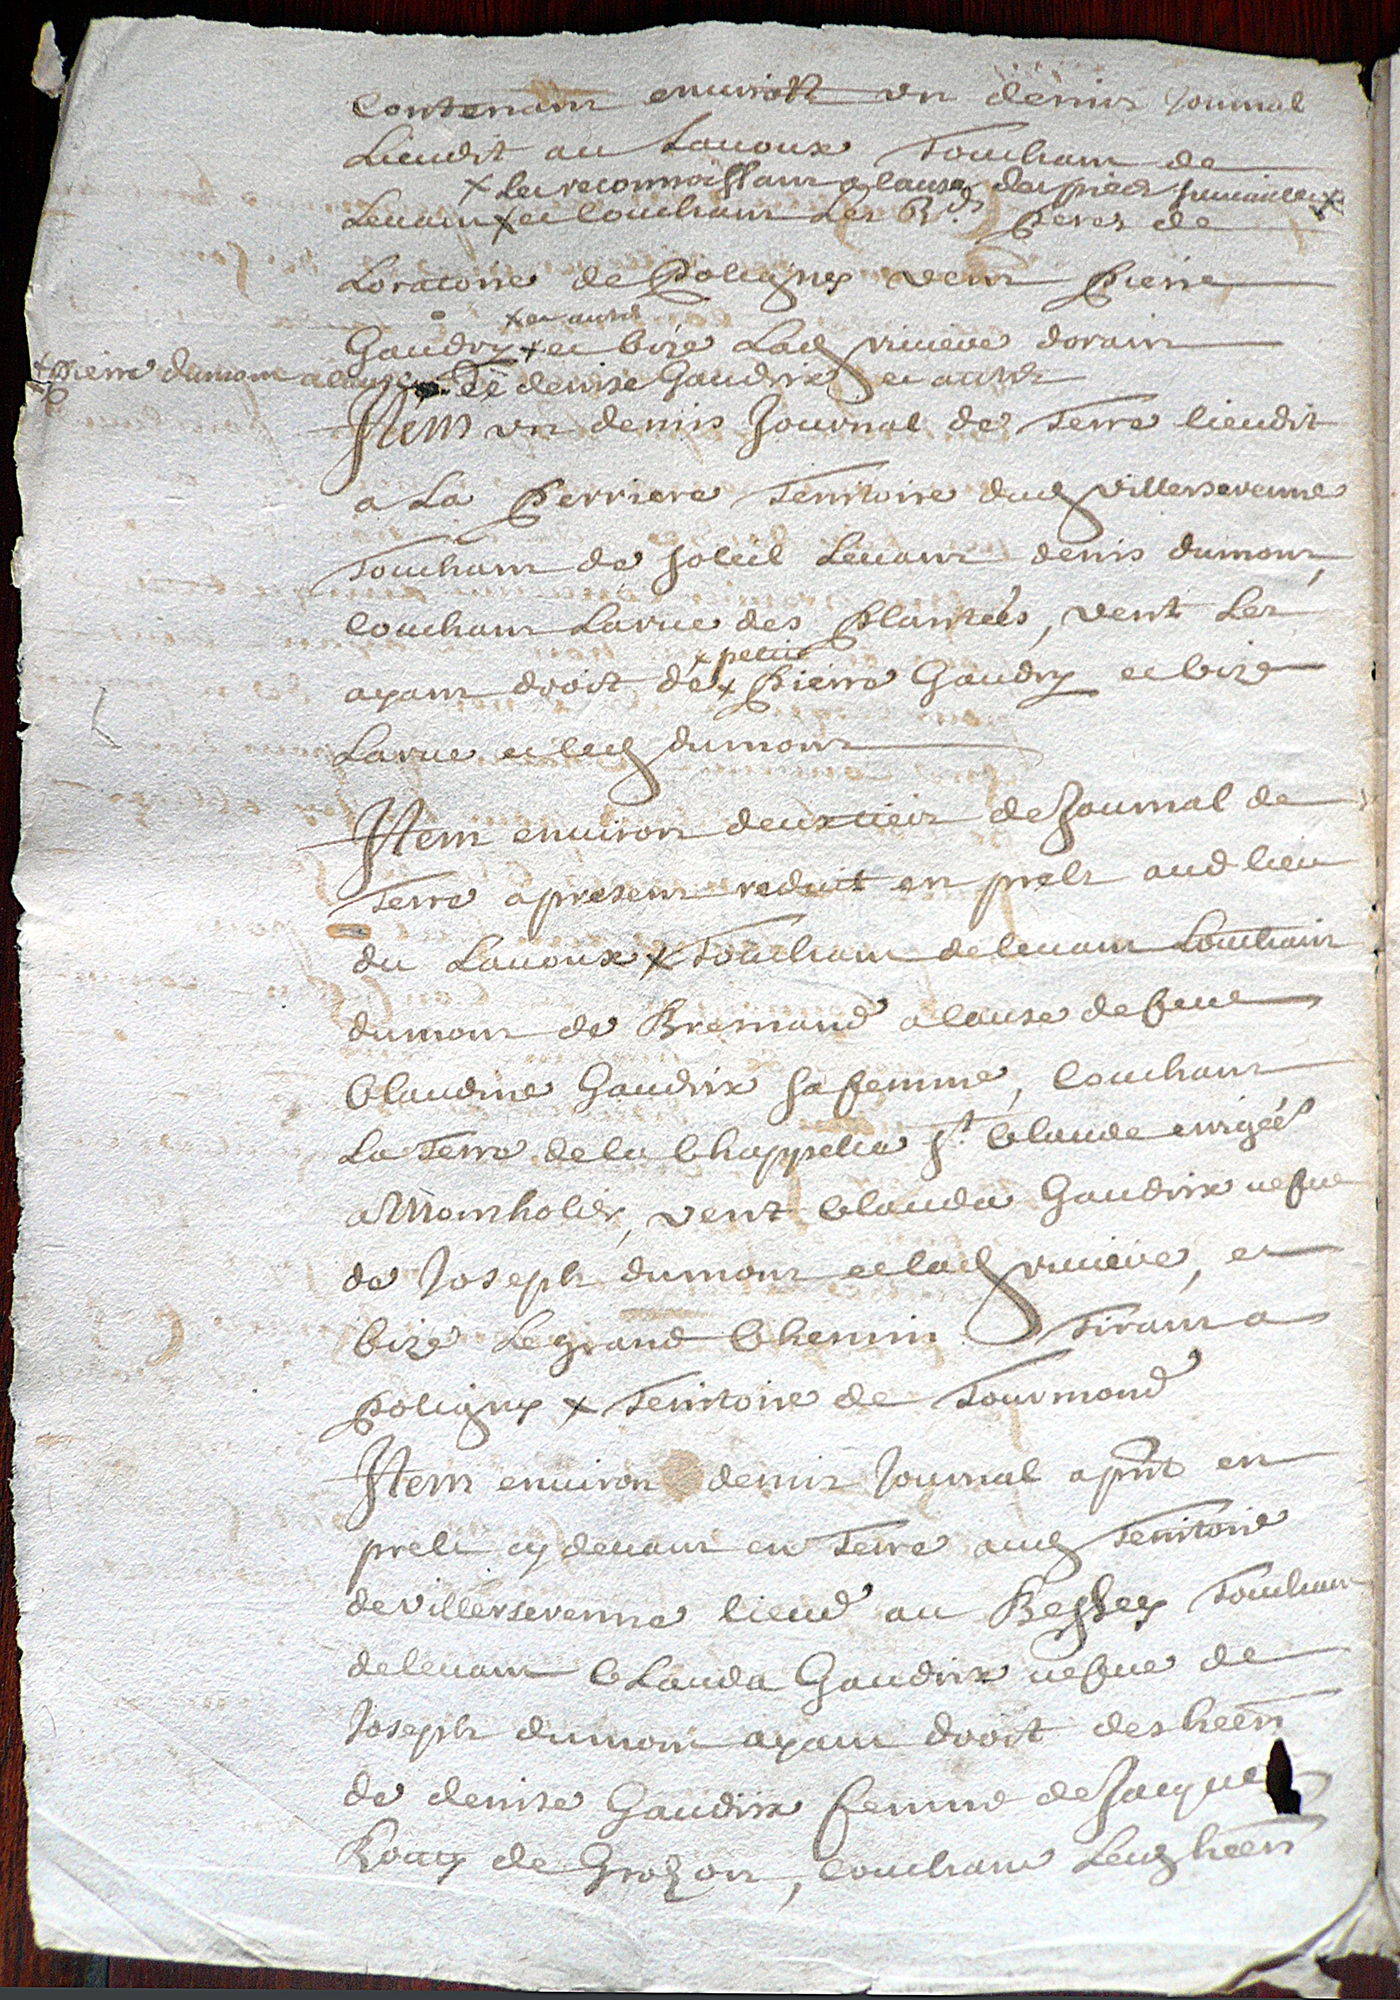 Contenant environ un demis Journal
Lieudit au Lavoux Touchant de
x les reconnoissant a cause des pieds
Levant x et Couchant Les Rds peres de
Loratoire de Poligny vent Pierre
x et autre
Gaudry x et bize Lad riviere dorain
+ Pierre dumont a cause de denise Gaudrix et autre
Item un demis Journal de Terre lieudit
a La Perriere Territoire dud villersserenne
Touchant de soleil Levant denis dumont,
Couchant La rue des Plantées, vent Les
x petit
ayant droit de x Pierre Gaudry et bize
La rue et led dumont
Item environ deux tier de Journal de
Terre apresent reduit en prelz aud lieu
du Lavoux x Touchant de levant
dumont de Bresnand a cause de feue
Claudine Gaudrix sa femme, Couchant
La Terre de la Chappelle st Claude errigée
a Montholier, vent Clauda Gaudrix vefve
de Joseph dumont et lad riviere, et
bize Le grand Chemin Tirant a
Poligny x Territoire de Tourmond
Item environ demis Journal apnt en
prelz cy devant en Terre aud Territoire
de villersserenne lieud au Bessey Touchant
de levant Clauda Gaudrix vefve de
Joseph dumont ayant droit des heërs
de denise Gaudrix femme de Jacque
Rouy de Grozon, Couchant Lesd heërs